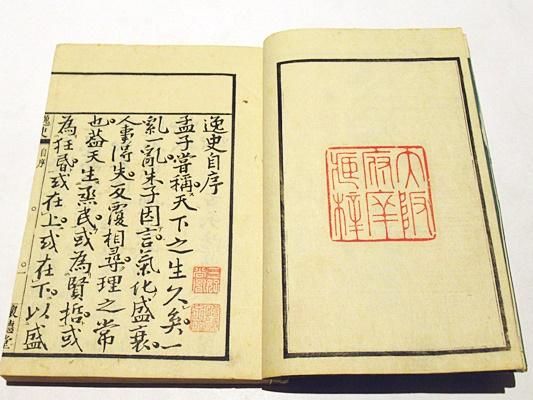 大阪
逸史自序
孟子嘗稱天下之生久矣一
一亂朱子因言氣化盛衰
人事得失反覆相尋理之常
也蓋天生烝民或為賢哲或
為狂昏或在上或在下以盛
逸史
自序
懷德堂